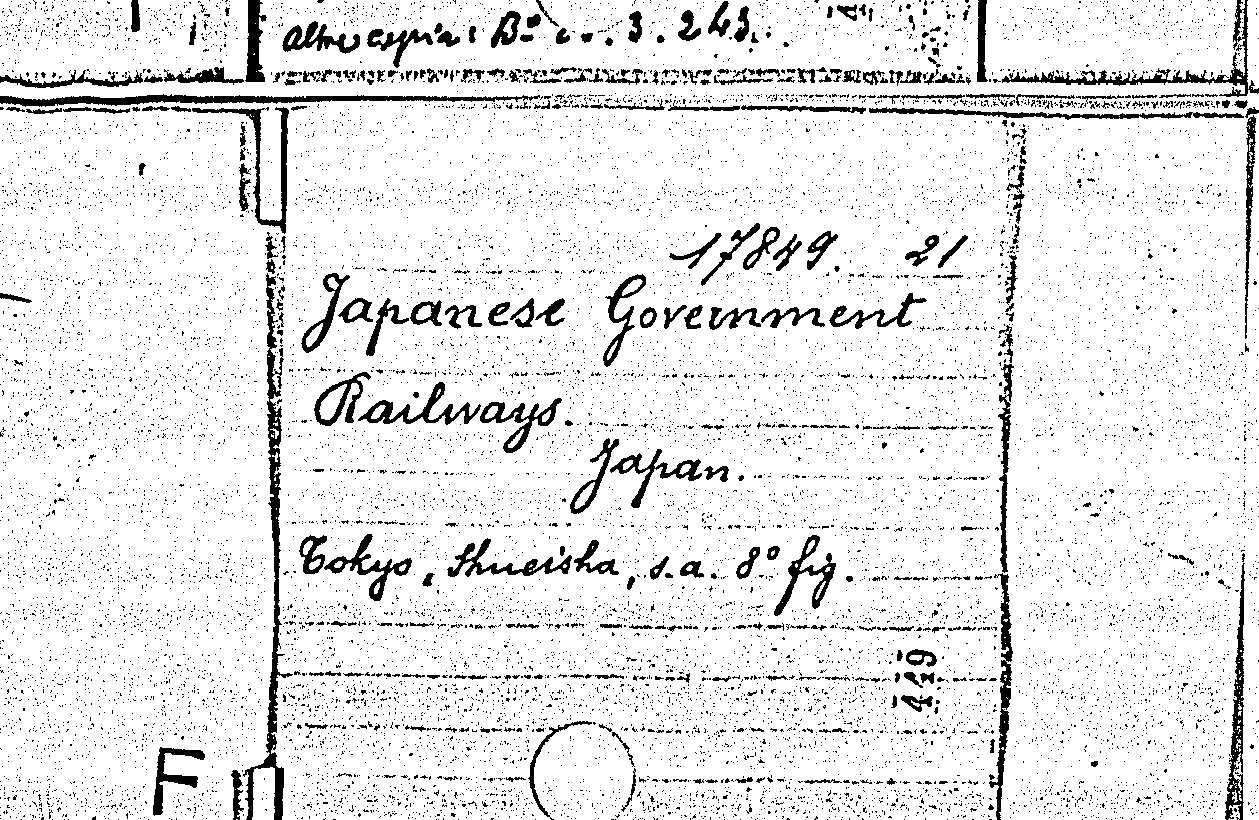 altro espia: B° c.. 3.243.
17849. 21
Japanese Government
Railways.
Japan.
Tokyo, Shueisha, s.a. 8° fig.
449
F